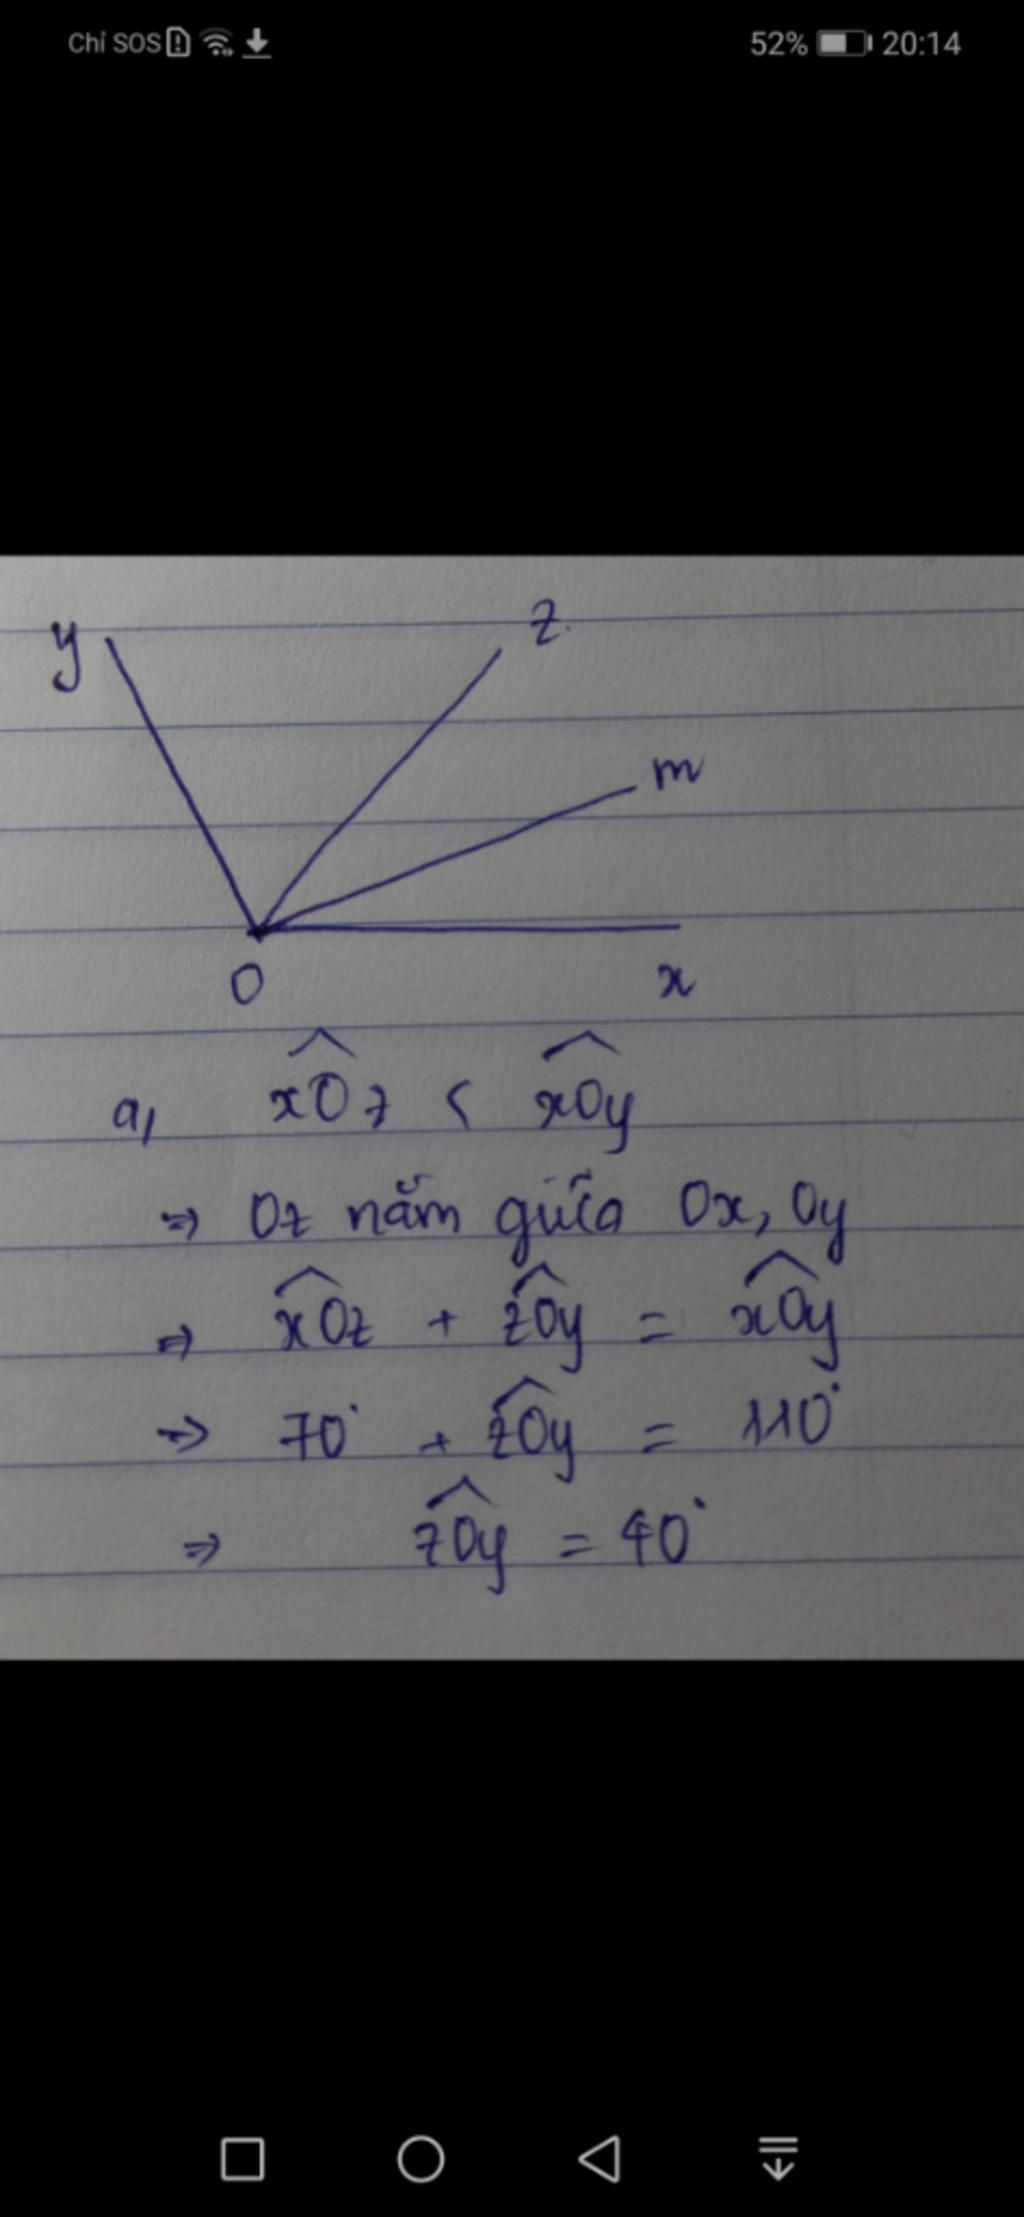 Chỉ SOS 52% 20:14
y z
m
O x
a, xOz < xOy
=> Oz nằm giữa Ox, Oy
=> xOz + zOy = xOy
=> 70° + zOy = 110°
=> zOy = 40°